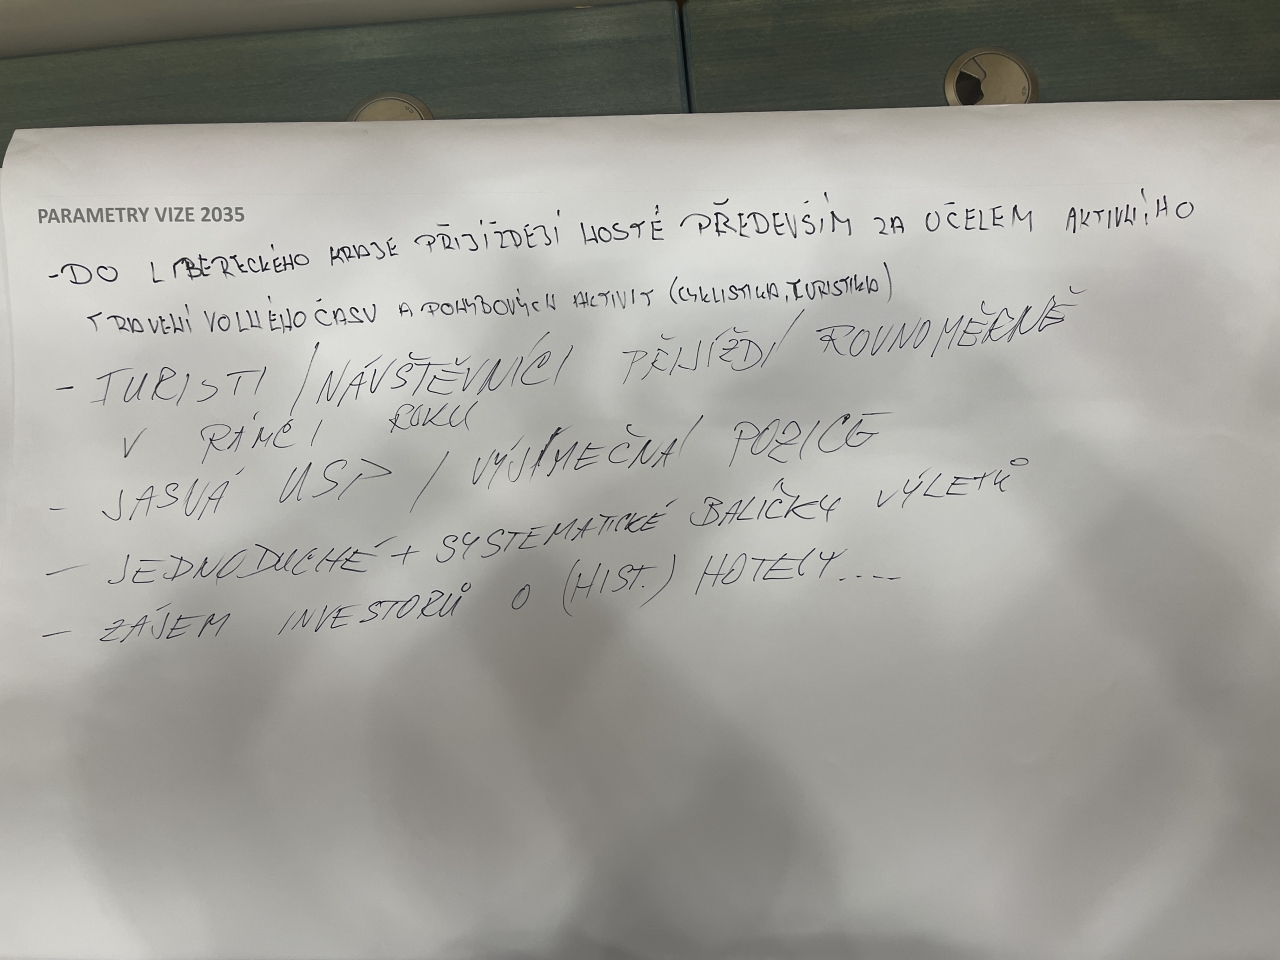 PARAMETRY VIZE 2035
- DO LIBERECKÉHO KRAJE PŘIJÍŽDĚJÍ HOSTÉ PŘEDEVŠÍM ZA ÚČELEM AKTIVNÍHO
TRÁVENÍ VOLNÉHO ČASU A POHYBOVÝCH AKTIVIT (CYKLISTIKA, TURISTIKA)
- TURISTI / NÁVŠTĚVNÍCI PŘIJÍŽDÍ ROVNOMĚRNĚ
V RÁMCI ROKU
- JASNÁ USP / VÝJIMEČNÁ POZICE
- JEDNODUCHÉ + SYSTEMATICKÉ BALÍČKY VÝLETŮ
- ZÁJEM INVESTORŮ O (HIST.) HOTELY.....